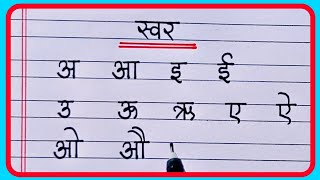 स्वर
अ आ इ ई
उ ऊ ऋ ए ऐ
ओ औ